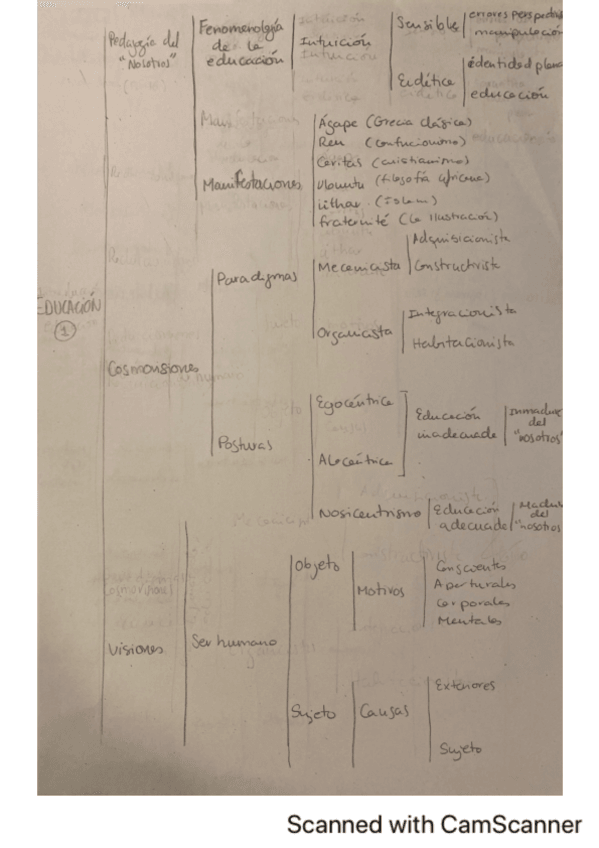 Pedagogía del
"Nosotros"
Fenomenología
de la
educación
Intuición
Sensible
errores perspectiva
manipulación
Eidética
identidad plena
educación
Manifestaciones
Ágape (Grecia clásica)
Ren (confucionismo)
Caritas (cristianismo)
Ubountu (filosofía africana)
iithar (Islam)
fraternité (la Ilustración)
EDUCACIÓN
1
Cosmovisiones
Paradigmas
Mecanicista
Adquisicionista
Constructivista
Organicista
Integracionista
Habitacionista
Posturas
Egocéntrica
Alocéntrica
Educación
inadecuada
Inmadurez
del
"nosotros"
Nosicentrismo
Educación
adecuada
Madurez
del
"nosotros"
Visiones
Ser humano
Objeto
Motivos
Conscientes
Aperturales
Corporales
Mentales
Sujeto
Causas
Exteriores
Sujeto
Scanned with CamScanner